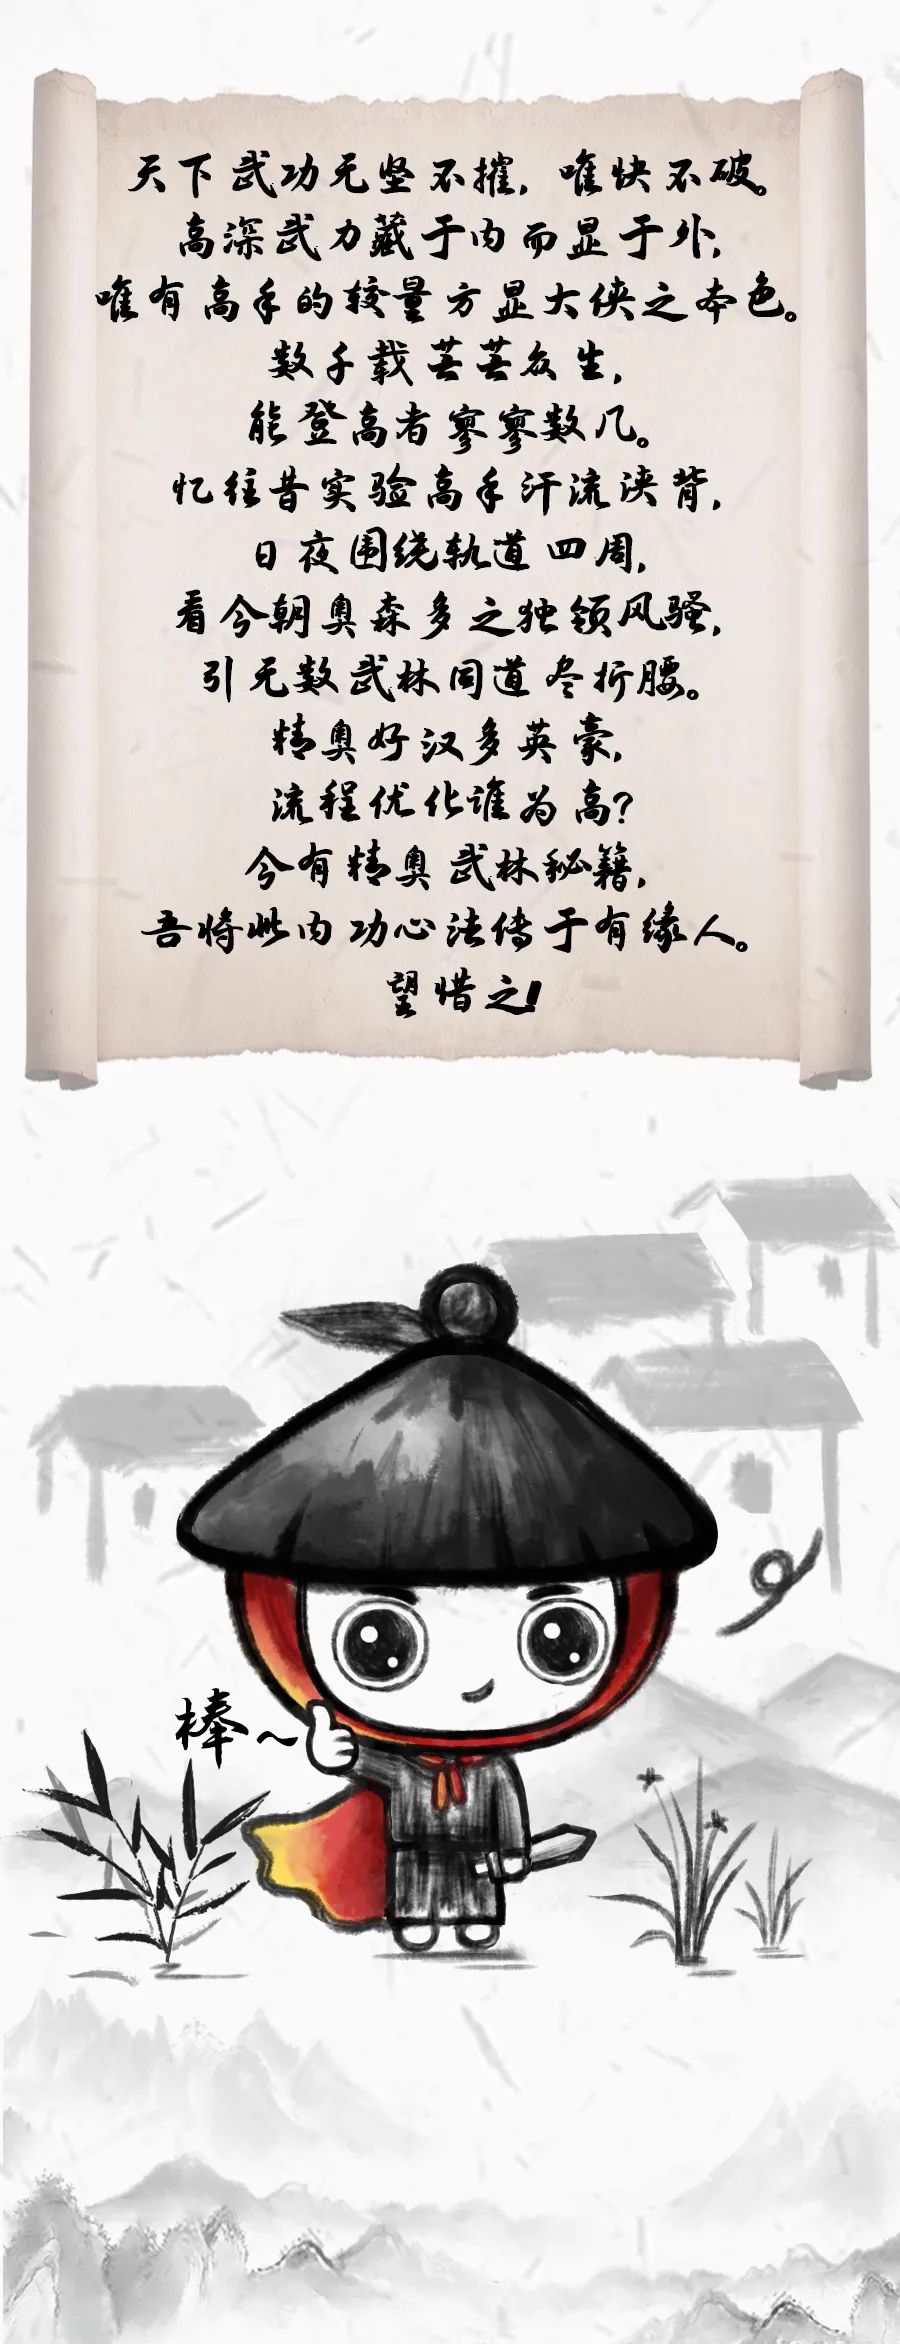 天下武功无坚不摧，唯快不破。
高深武力藏于内而显于外，
唯有高手的较量方显大侠之本色。
数千载芸芸众生，
能登高者寥寥数几。
忆往昔实验高手汗流浃背，
日夜围绕轨道四周，
看今朝奥森多之独领风骚，
引无数武林同道尽折腰。
精奥好汉多英豪，
流程优化谁为高？
今有精奥武林秘籍，
吾将此内功心法传于有缘人。
望惜之！
棒~